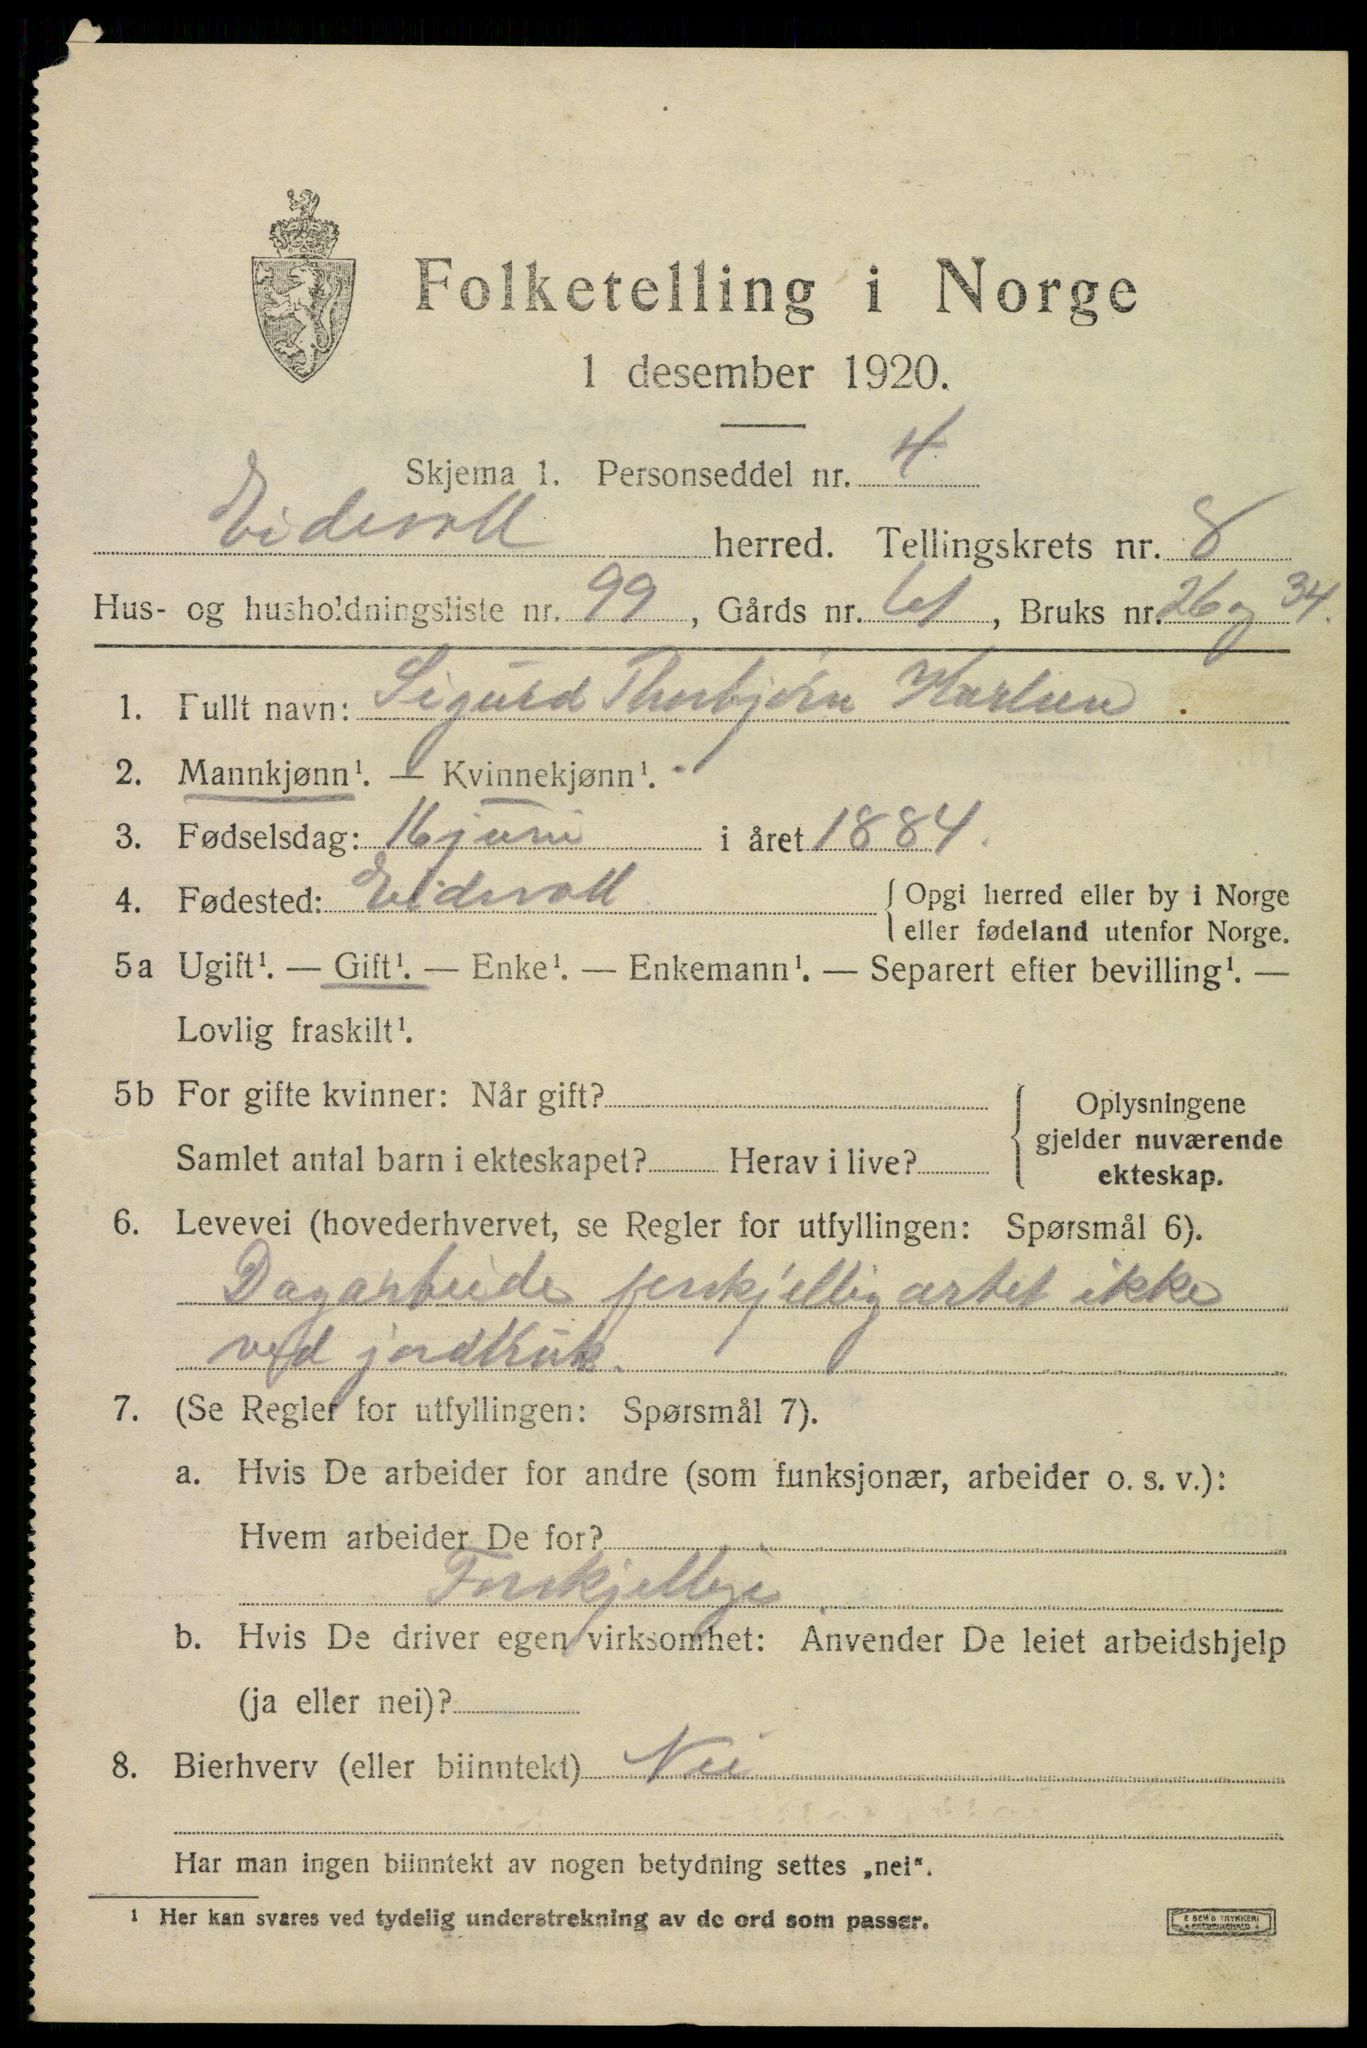 Folketelling i Norge
1 desember 1920.
Skjema 1. Personseddel nr. 4
Eidsvoll herred. Tellingskrets nr. 8
Hus- og husholdningsliste nr. 99, Gårds nr. 61, Bruks nr. 26 og 34.
1. Fullt navn: Sigurd Thorbjørn Karlsen.
2. Mannkjønn¹. — Kvinnekjønn¹.
3. Fødselsdag: 16 juni i året 1884.
4. Fødested: Eidsvoll { Opgi herred eller by i Norge
eller fødeland utenfor Norge.
5a Ugift¹. — Gift¹. — Enke¹. — Enkemann¹. — Separert efter bevilling¹. —
Lovlig fraskilt¹.
5b For gifte kvinner: Når gift?
Samlet antal barn i ekteskapet? Herav i live?
Oplysningene
gjelder nuværende
ekteskap.
6. Levevei (hovederhvervet, se Regler for utfyllingen: Spørsmål 6).
Dagarbeide forskjellig artet ikke
ved jordbruk.
7. (Se Regler for utfyllingen: Spørsmål 7).
a. Hvis De arbeider for andre (som funksjonær, arbeider o. s. v.):
Hvem arbeider De for?
Forskjellige
b. Hvis De driver egen virksomhet: Anvender De leiet arbeidshjelp
(ja eller nei)?
8. Bierhverv (eller biinntekt) Nei
Har man ingen biinntekt av nogen betydning settes „nei“.
¹ Her kan svares ved tydelig understrekning av de ord som passer.
E SEM'S TRYKKERI
FREDRIKSHALD